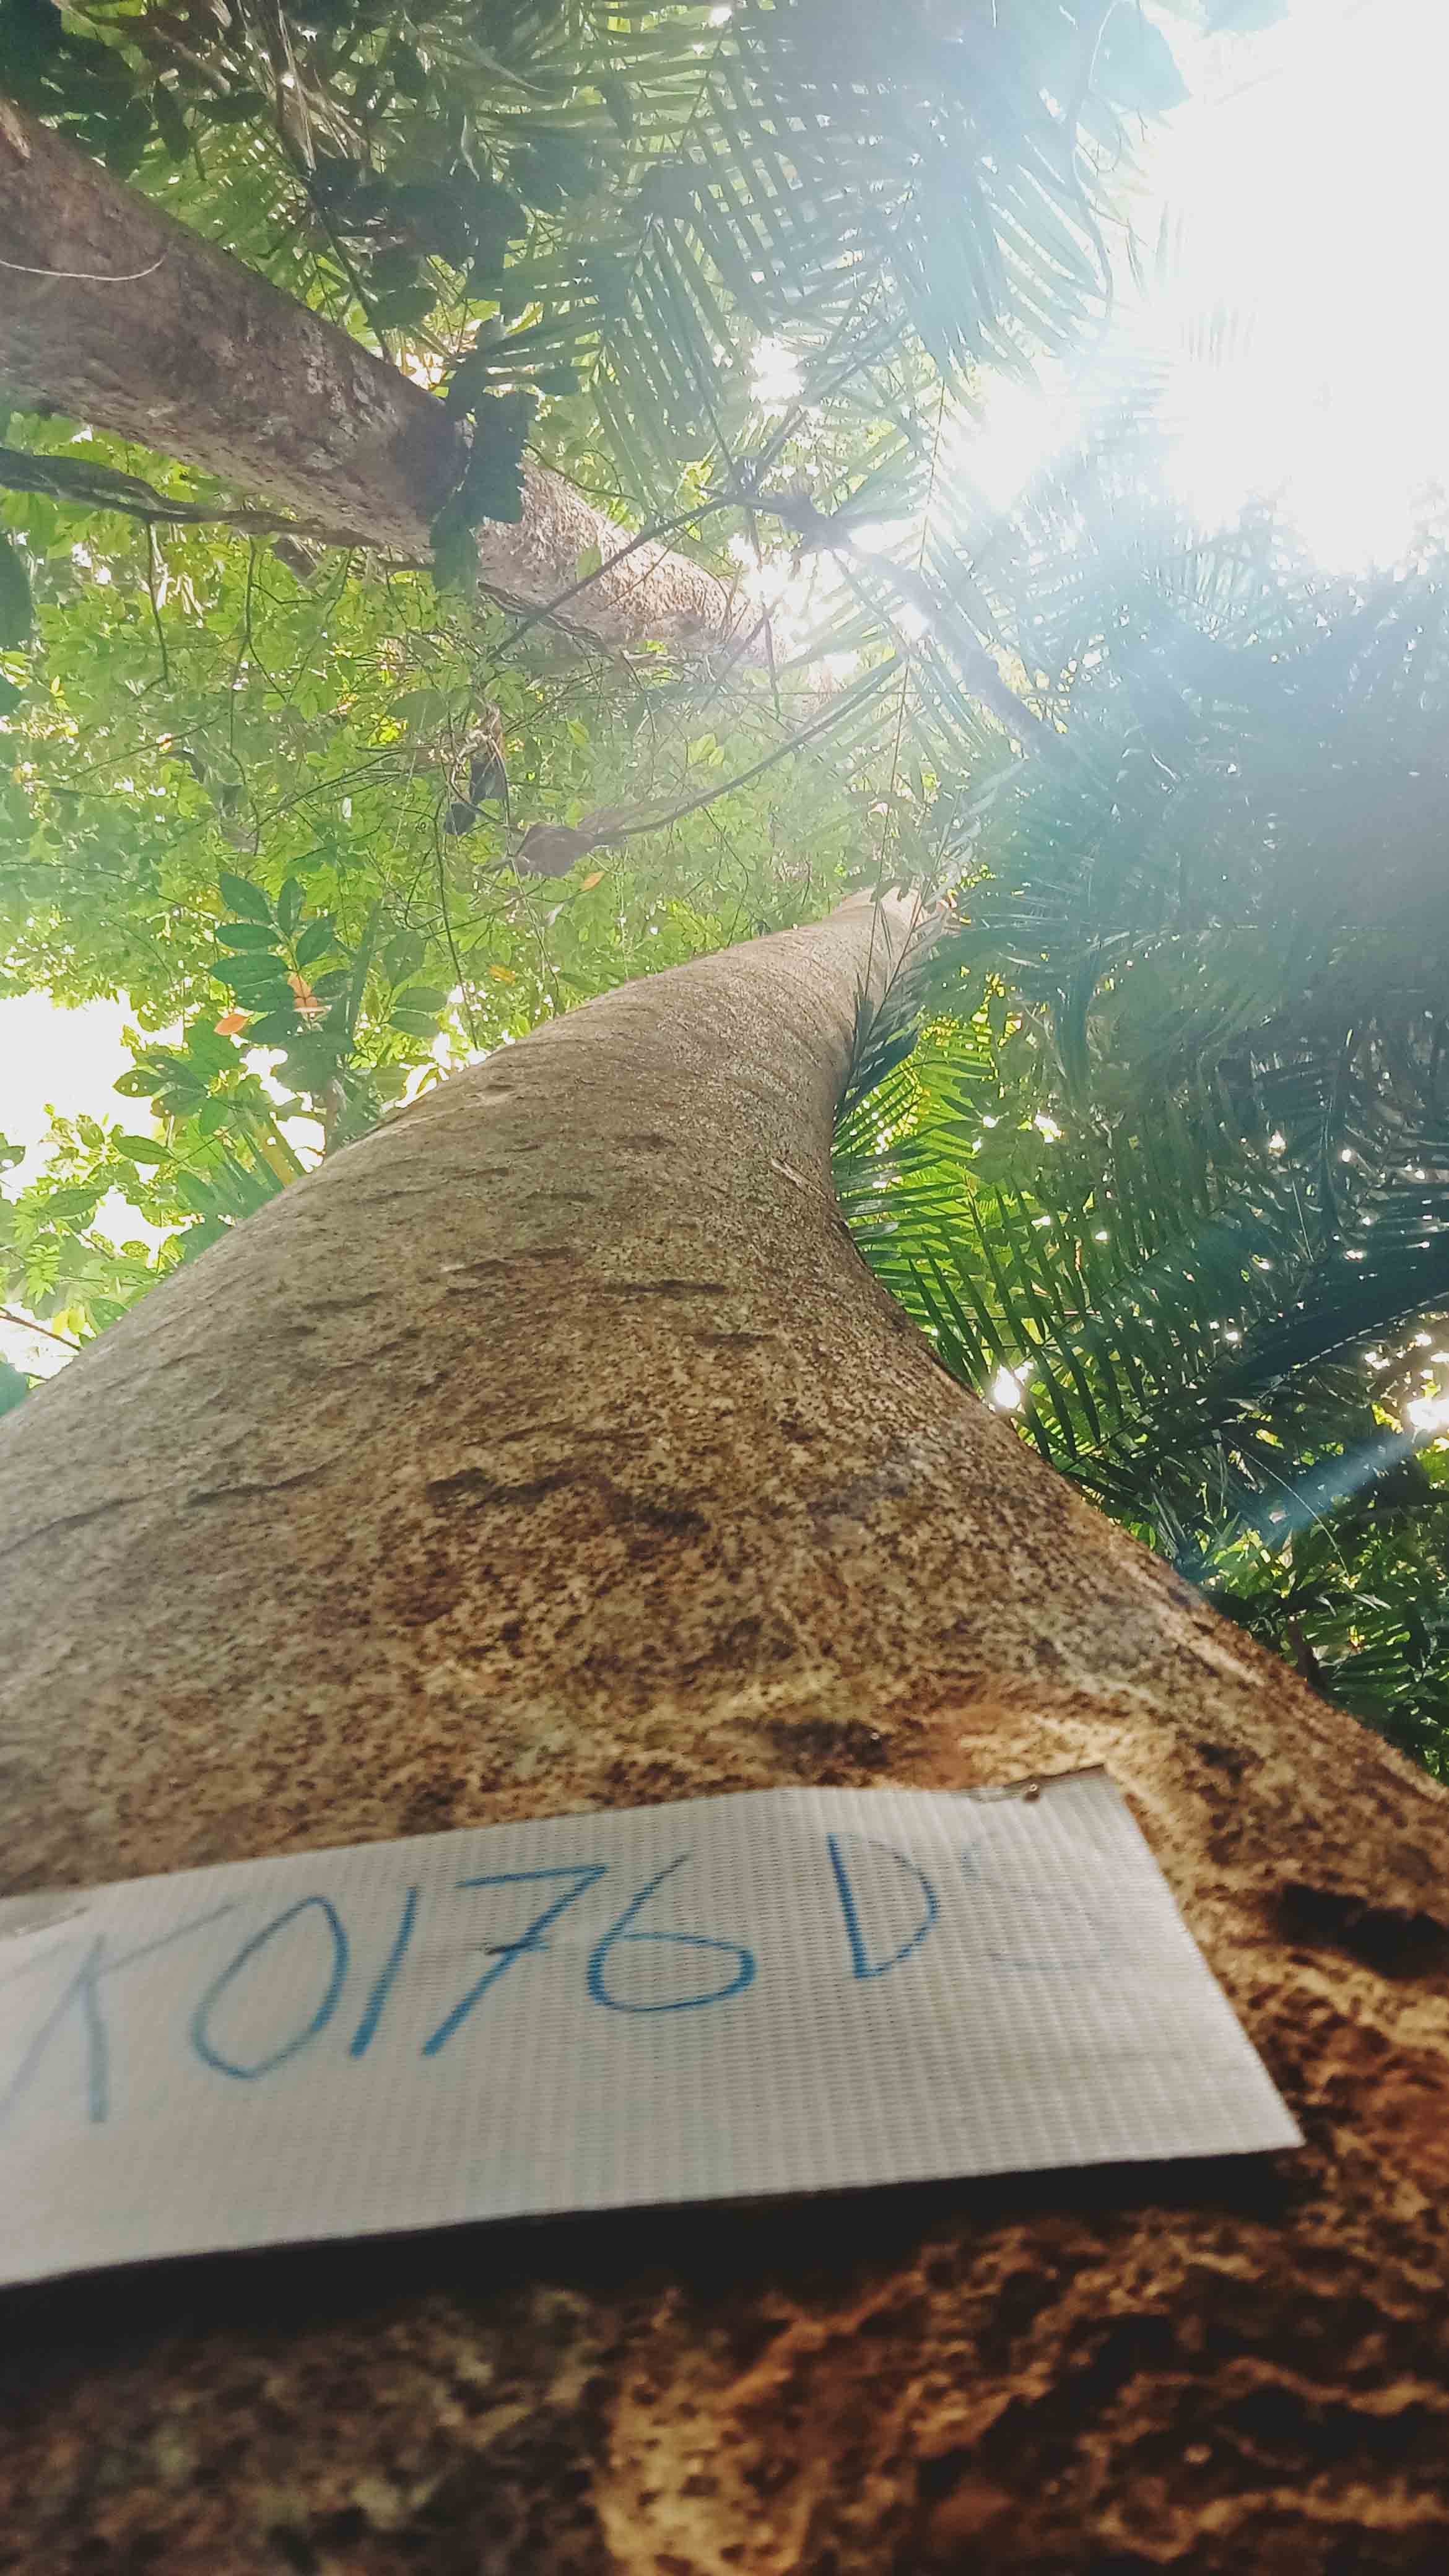 K0176 DS